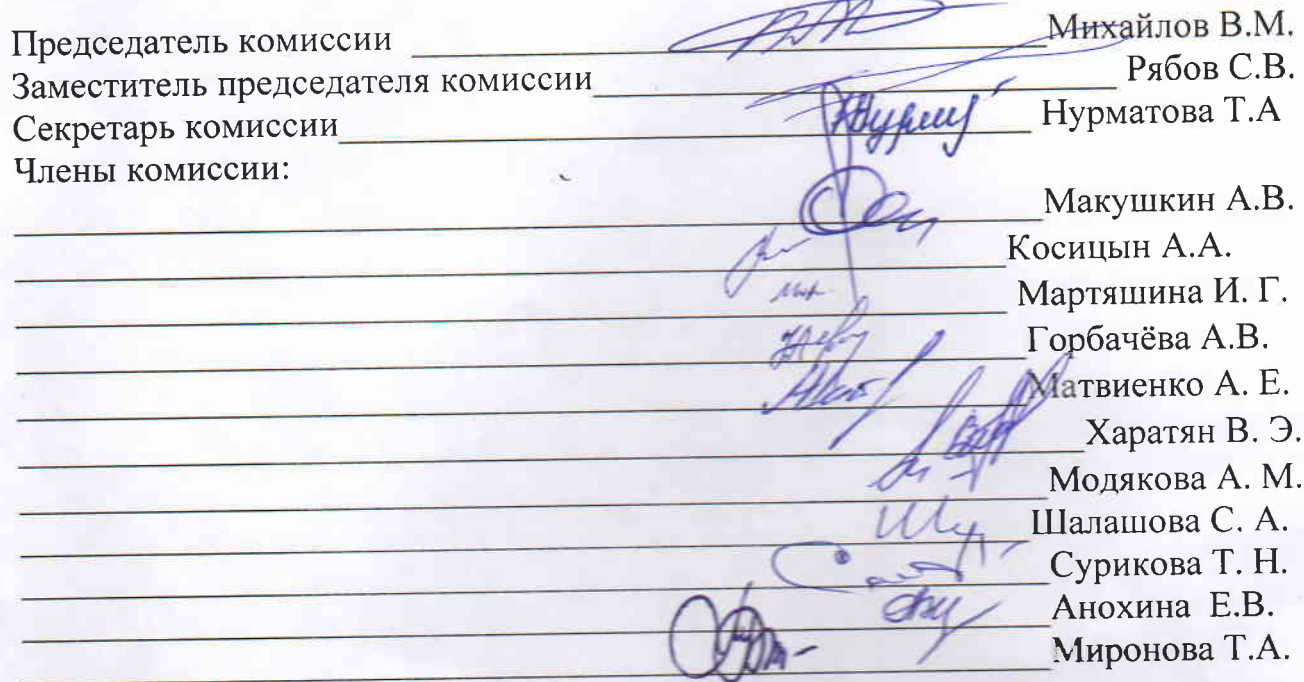 Председатель комиссии Михайлов В.М.
Заместитель председателя комиссии Рябов С.В.
Секретарь комиссии Нурматова Т.А
Члены комиссии:
Макушкин А.В.
Косицын А.А.
Мартяшина И. Г.
Горбачёва А.В.
Матвиенко А. Е.
Харатян В. Э.
Модякова А. М.
Шалашова С. А.
Сурикова Т. Н.
Анохина Е.В.
Миронова Т.А.